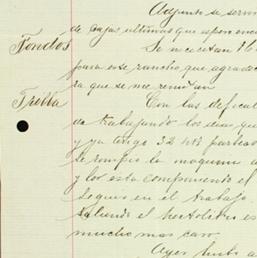 Adjunto se servi
de cajas ultimas que
Fondos Se necesitan 16
para este rancho que agrade
ra que se me remitan
Trilla Con las dificul
de trabajando los dias que
y ya tengo 32 hts parba
Se rompio la maquina
y los esta componiendo el
Seguro en el trabajo.
Saliendo el hectolitro es
mucho mas caro
Ayer hubo a